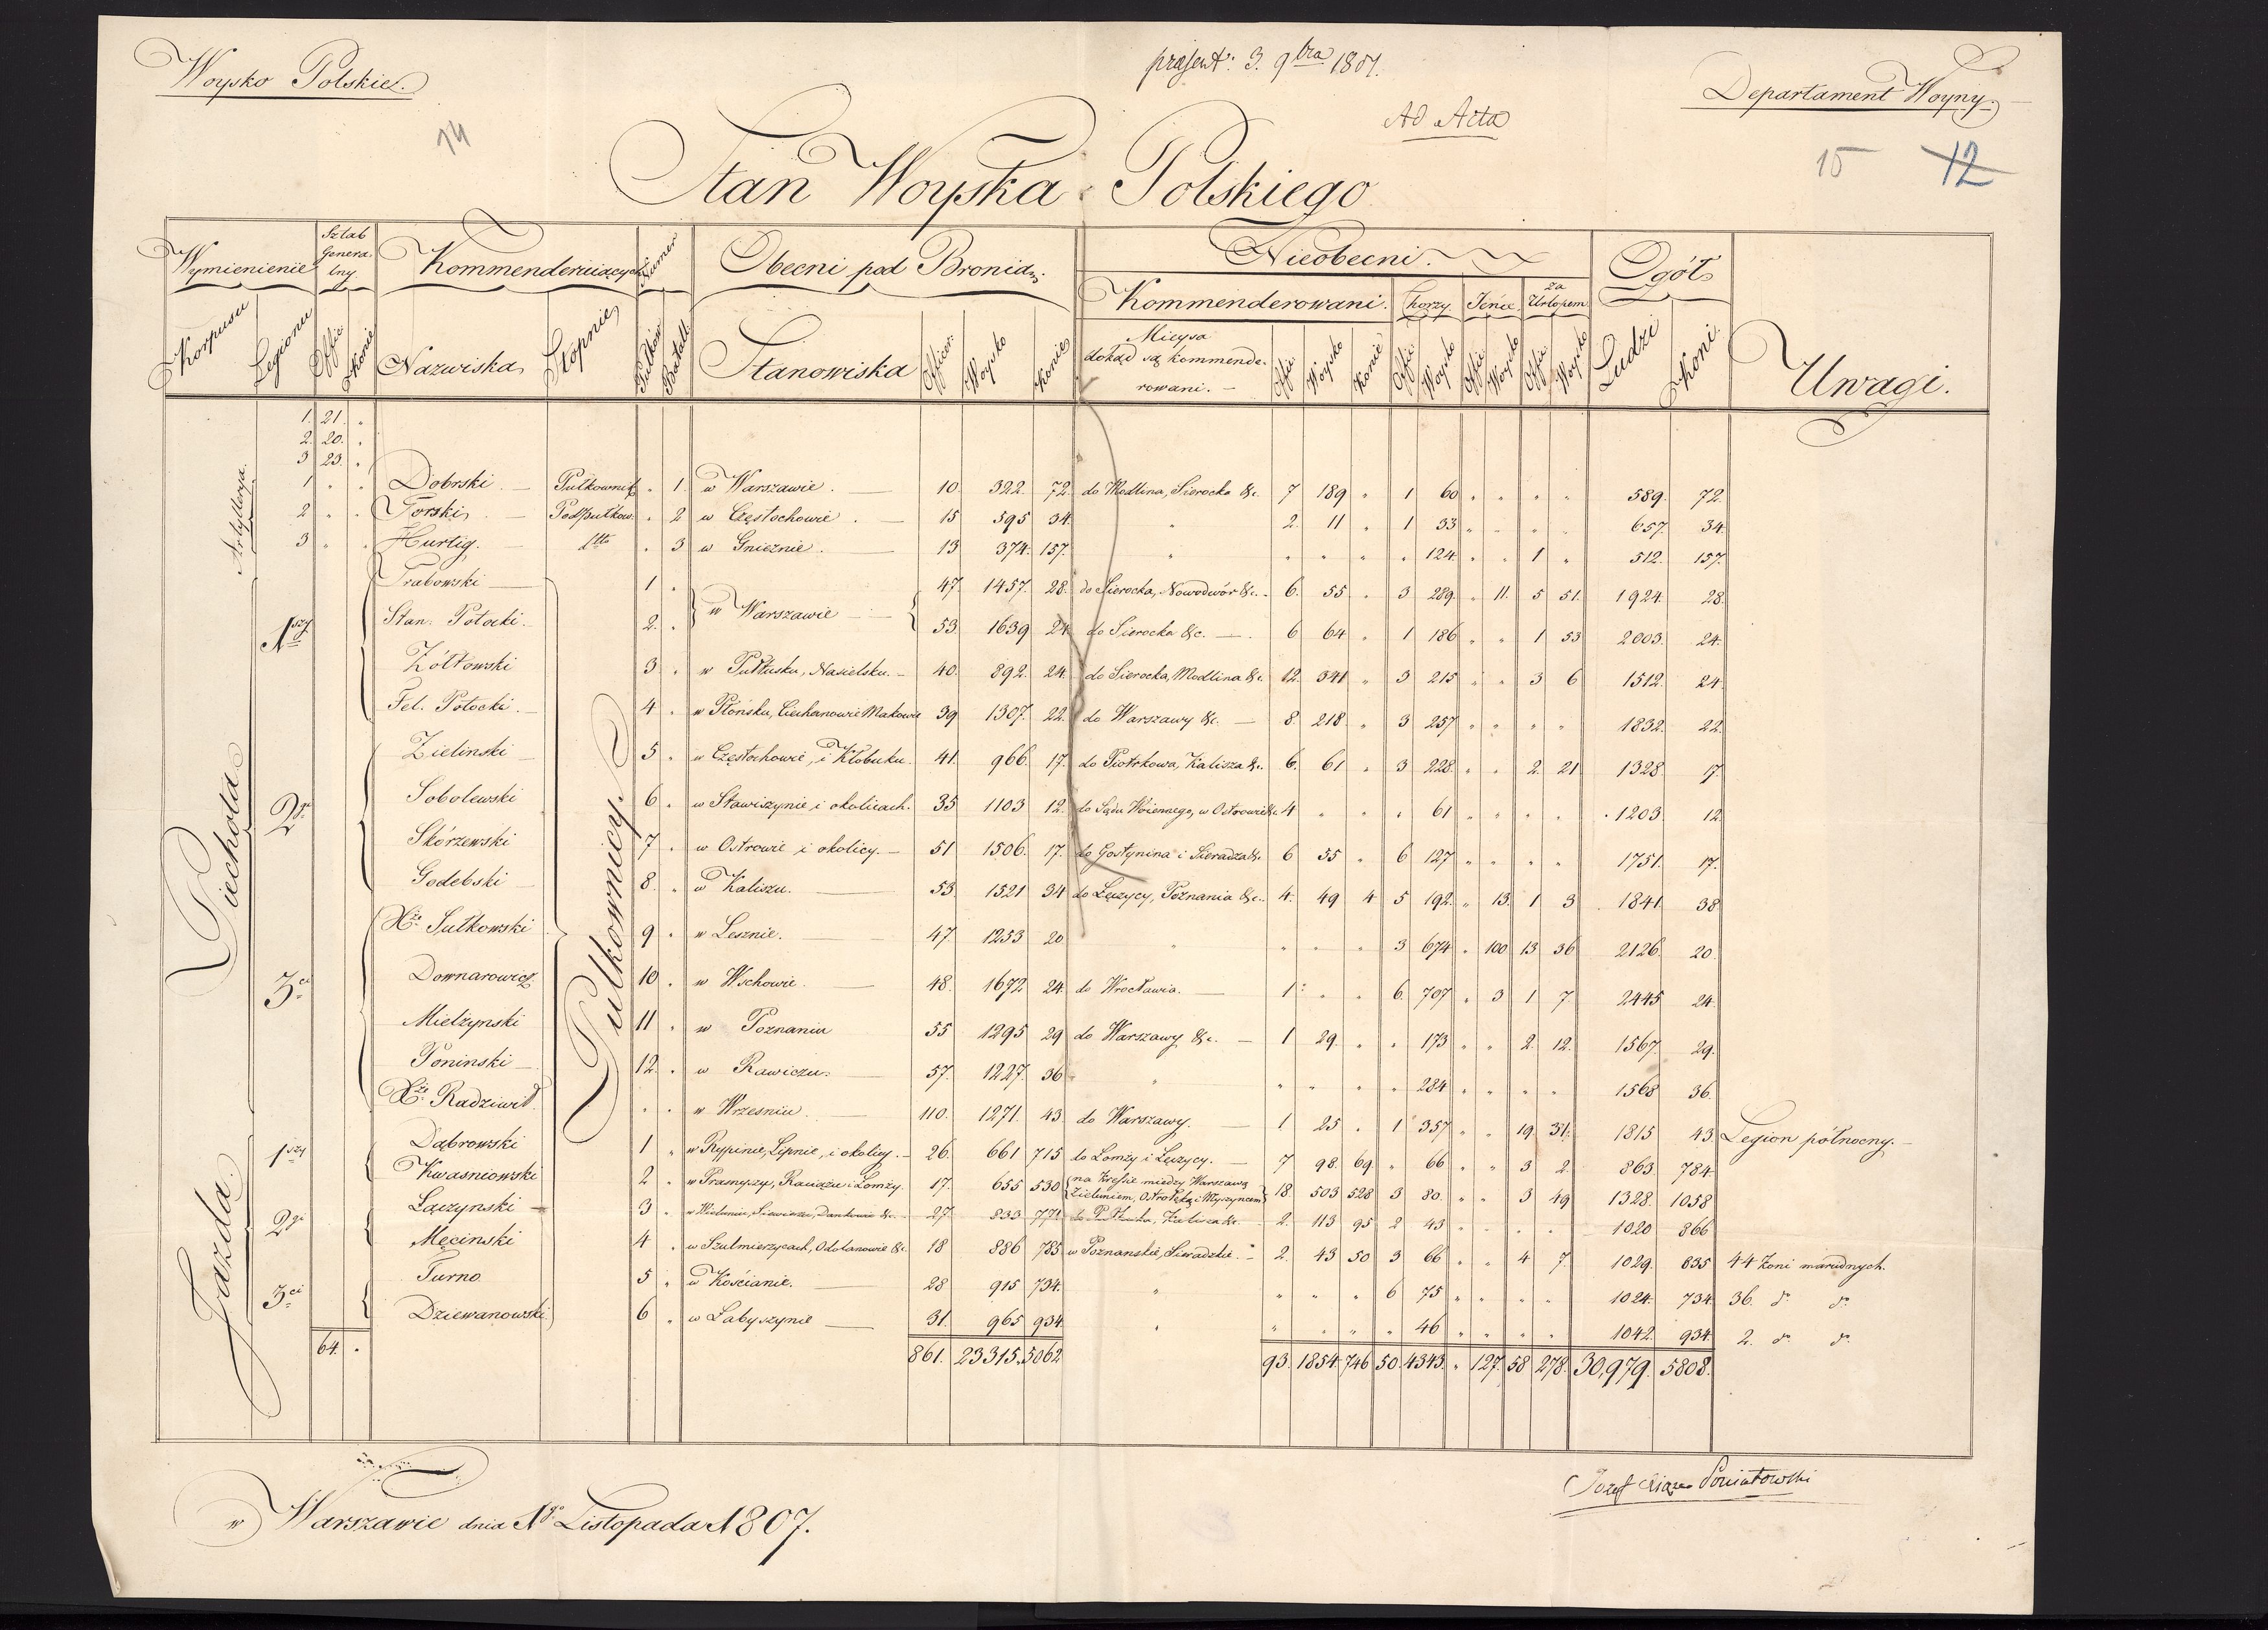 Woysko Polskie.
præsent: 3. 9bra 1807.
Ad Acta
Departament Woyny.
14
15 12
Stan Woyska Polskiego
Wymienienie Sztab Generalny. Kommenderuiących Numer Obecni pod Bronią. Nieobecni. Ogół Uwagi.
Kommenderowani. Chorzy. Jeńce. za Urlopem
Korpusu Legionu Offic: Konie Nazwiska Stopnie Pułków Batall: Stanowiska Officer: Woysko Konie Mieysa dokąd są kommenderowani. Offic: Woysko Konie Offic: Woysko Offic: Woysko Offic: Woysko Ludzi Koni.
1. 21. "
2. 20. "
3 23. "
Artyllerya.
1 " " Dobrski Pułkownik " 1. w Warszawie. 10. 322. 72. do Modlina, Sierocka &c. 7 189 " 1 60 " " " " 589. 72.
2 " " Górski Podpułkow: " 2 w Częstochowie. 15 595 34. " 2. 11 " 1 33 " " " " 657. 34.
3 " " Hurtig. dtto " 3 w Gnieznie. 13 374. 157. " " " " " 124. " " 1 " 512. 157.
Piechota
1szy
Grabowski 1 " w Warszawie 47. 1457. 28. do Sierocka, Nowodwór &c. 6. 55 " 3 289. " 11. 5 51. 1924. 28.
Stan: Potocki. 2. " 53 1639 24. do Sierocka &c. 6 64 " 1 186 " " 1 53 2003. 24.
Żółtowski 3 " w Pułtusku, Nasielsku. 40. 892. 24. do Sierocka, Modlina &c. 12. 341 " 3 215 " " 3 6 1512. 24
Fel. Potocki. 4 " w Płońsku, Ciechanowie Makowie 39 1307. 22. do Warszawy &c. 8. 218 " 3 257 " " " " 1832. 22.
2gi
Zielinski 5 " w Częstochowie, i Kłobuku. 41. 966. 17. do Piotrkowa, Kalisza &c. 6. 61 " 3 228. " " 2. 21 1328. 17.
Sobolewski 6 " w Stawiszynie i okolicach. 35 1103 12. do Sądu Woiennego, w Ostrowie &c. 4 " " " 61 " " " " 1203. 12
Skórzewski 7 " w Ostrowie i okolicy. 51 1506. 17. do Gostynina i Sieradza &c. 6 55 " 6 127 " " " " 1751. 17.
Godebski 8. " w Kaliszu. 53. 1521 34 do Łęczycy, Poznania &c. 4. 49 4 5 192. " 13. 1 3 1841. 38
3ci
Xże Sułkowski 9 " w Lesznie. 47. 1253 20 " " " " 3 674 " 100 13 36 2126. 20.
Downarowicz 10 " w Wschowie. 48. 1672 24. do Wrocławia. 1 " " 6. 707 " 3 1 7. 2445 24.
Mielżynski 11 " w Poznaniu 55 1295 29 do Warszawy &c. 1 29. " " 173 " " 2. 12. 1567. 29.
Poninski 12. " w Rawiczu. 57. 1227. 36 " " " " " 284 " " " " 1568 36.
Xże Radziwił. " " w Wrzesniu. 110. 1271. 43 do Warszawy. 1 25 " 1 357 " " 19 31. 1815 43 Legion północny.
Pułkownicy
Jazda.
1szy
Dąbrowski 1 " w Rypinie, Lipnie, i okolicy. 26. 661 715 do Lomży i Łęczycy. 7 98. 69. " 66 " " 3 2 863. 784.
Kwasniowski 2 " w Pramyszy, Raciążu i Lomży. 17. 655 530 na Kressie między Warszawą Zieluniem, Ostrołęką i Myszyncem 18. 503 528 3 80. " " 3 49 1328. 1058
2gi
Łączynski 3 " w Wieluniu, Siewierzu, Dankowie &c. 27 833 771 Kalisza &c. 2. 113 95 2 43 " " " " 1020 866
Męcinski 4 " w Szulmierzycach, Odolanowie &c. 18 886 785 w Poznanskie, Sieradzkie. 2. 43 50 3 66 " " 4 7. 1029. 835 44 koni marudnych.
3ci
Turno 5 " w Kościanie. 28 915 734. " " " " 6 75 " " " " 1024. 734. 36. do do
Dziewanowski 6 " w Labyszynie 31. 965 934 " " " " " 46 " " " " 1042. 934. 2. do do
64. " 861. 23315. 5062 93. 1854 746 50. 4343. " 127. 58 278. 30,979. 5808.
w Warszawie dnia 1go Listopada 1807.
Jozef Xiąze Poniatowski